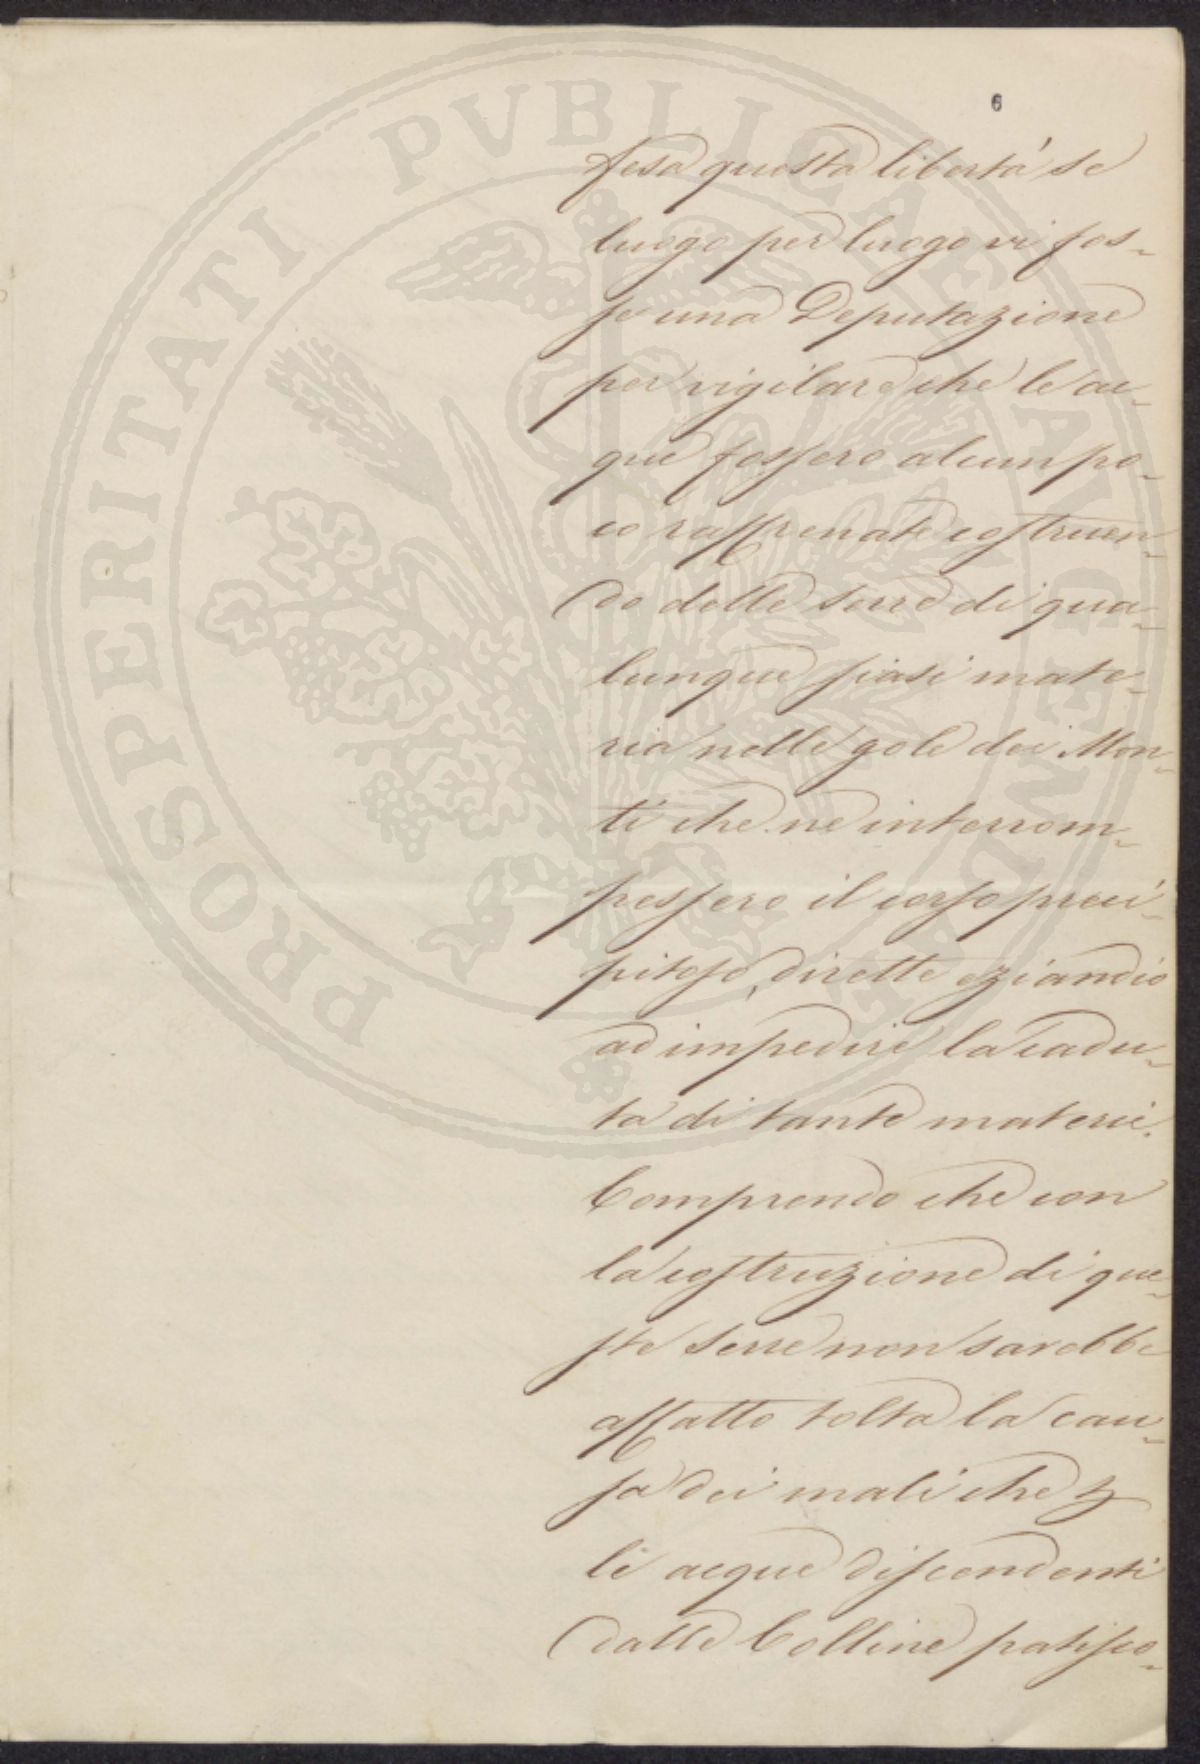 6
fesa questa libertà se
luogo per luogo vi fos-
se una Deputazione
per vigilare che le ac-
que fossero alcun po-
co raffrenate costruen-
do delle serre di qua-
lunque siasi mate-
ria nelle gole dei Mon-
ti che ne interrom-
pessero il corso preci-
pitoso, dirette eziandio
ad impedire la cadu-
ta di tante materie.
Comprendo che con
la costruzione di que-
ste serre non sarebbe
affatto tolta la cau-
sa dei mali che
li acque discendenti
dalle Colline patisco-
PROSPERITATI PVBLICAE AVGENDAE